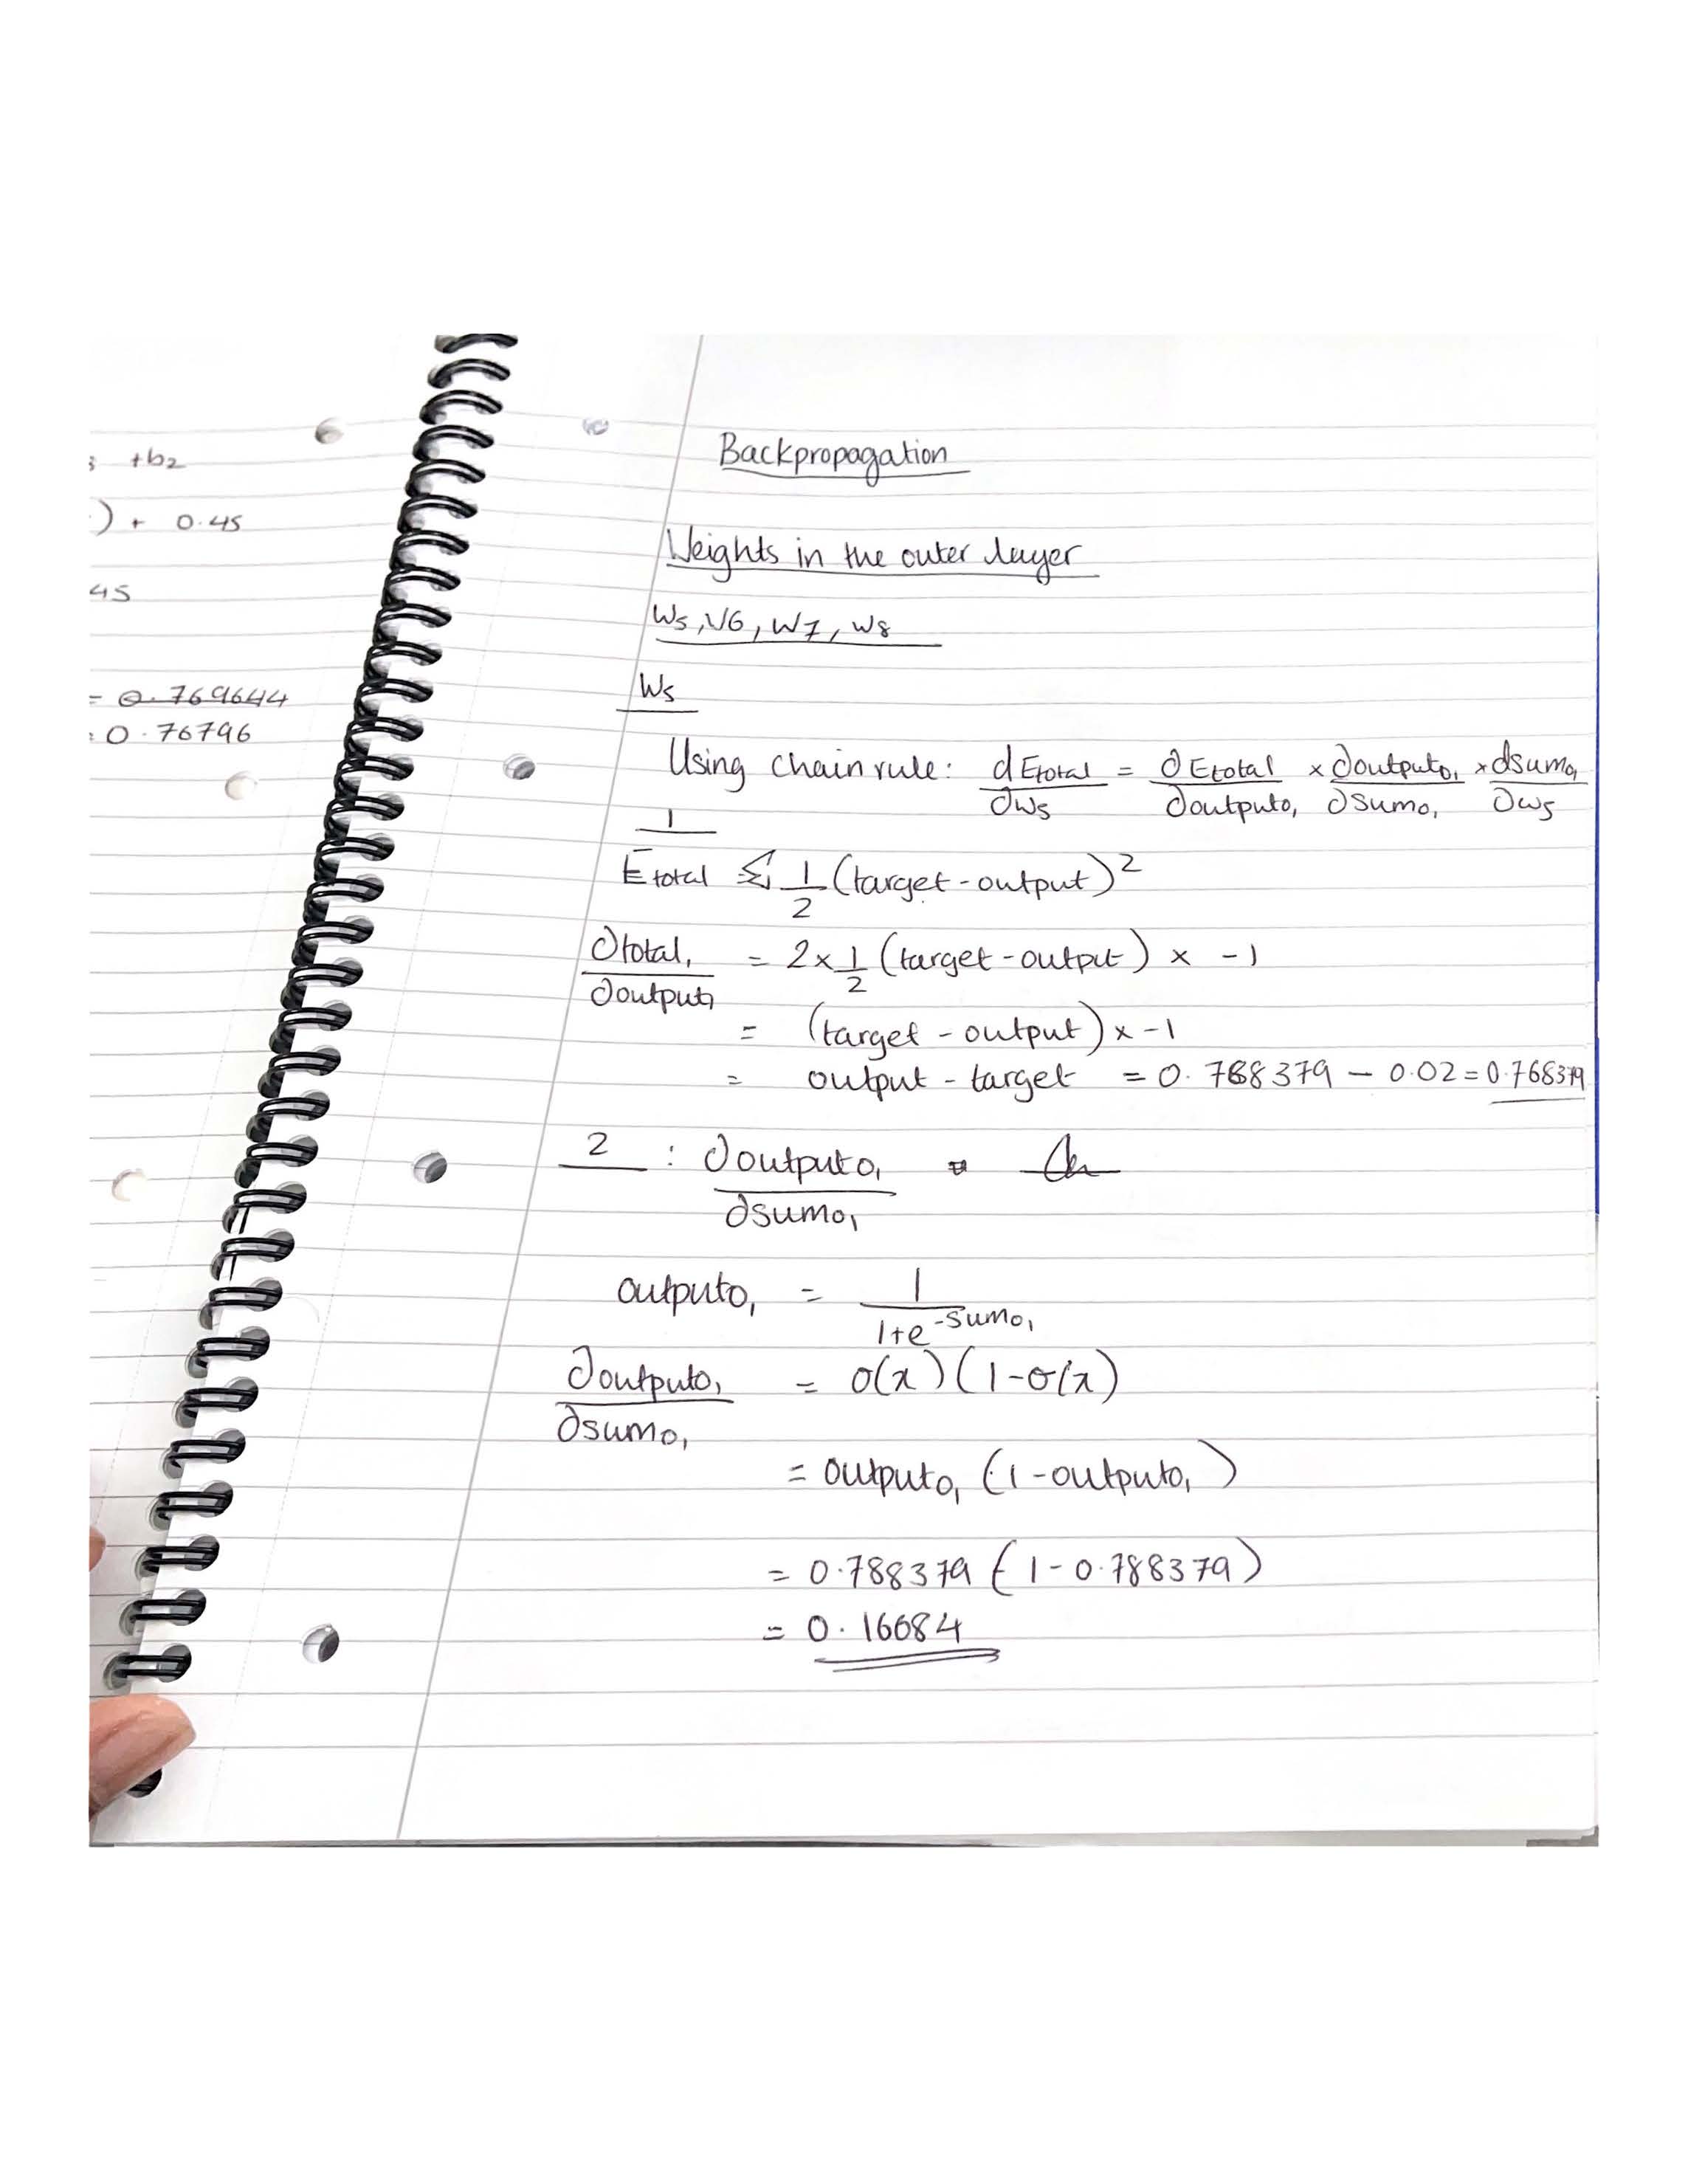 ; +b2
) + 0.45
45
= 0.769644
: 0.76796
Backpropagation
Weights in the outer layer
W5, V6, W7, W8
W5
Using chain rule: dEtotal/∂w5 = ∂Etotal/∂outputo1 × ∂outputo1/∂sumo1 × dsumo1/∂w5
1
Etotal ≤ 1/2 (target - output)²
∂total1/∂output1 = 2 × 1/2 (target - output) × -1
= (target - output) × -1
= output - target = 0.788379 - 0.02 = 0.768379
2 : ∂outputo1/∂sumo1 =
outputo1 = 1/1+e^-sumo1
∂outputo1/∂sumo1 = σ(x)(1-σ(x)
= outputo1 (1-outputo1)
= 0.788379 (1 - 0.788379)
= 0.16684